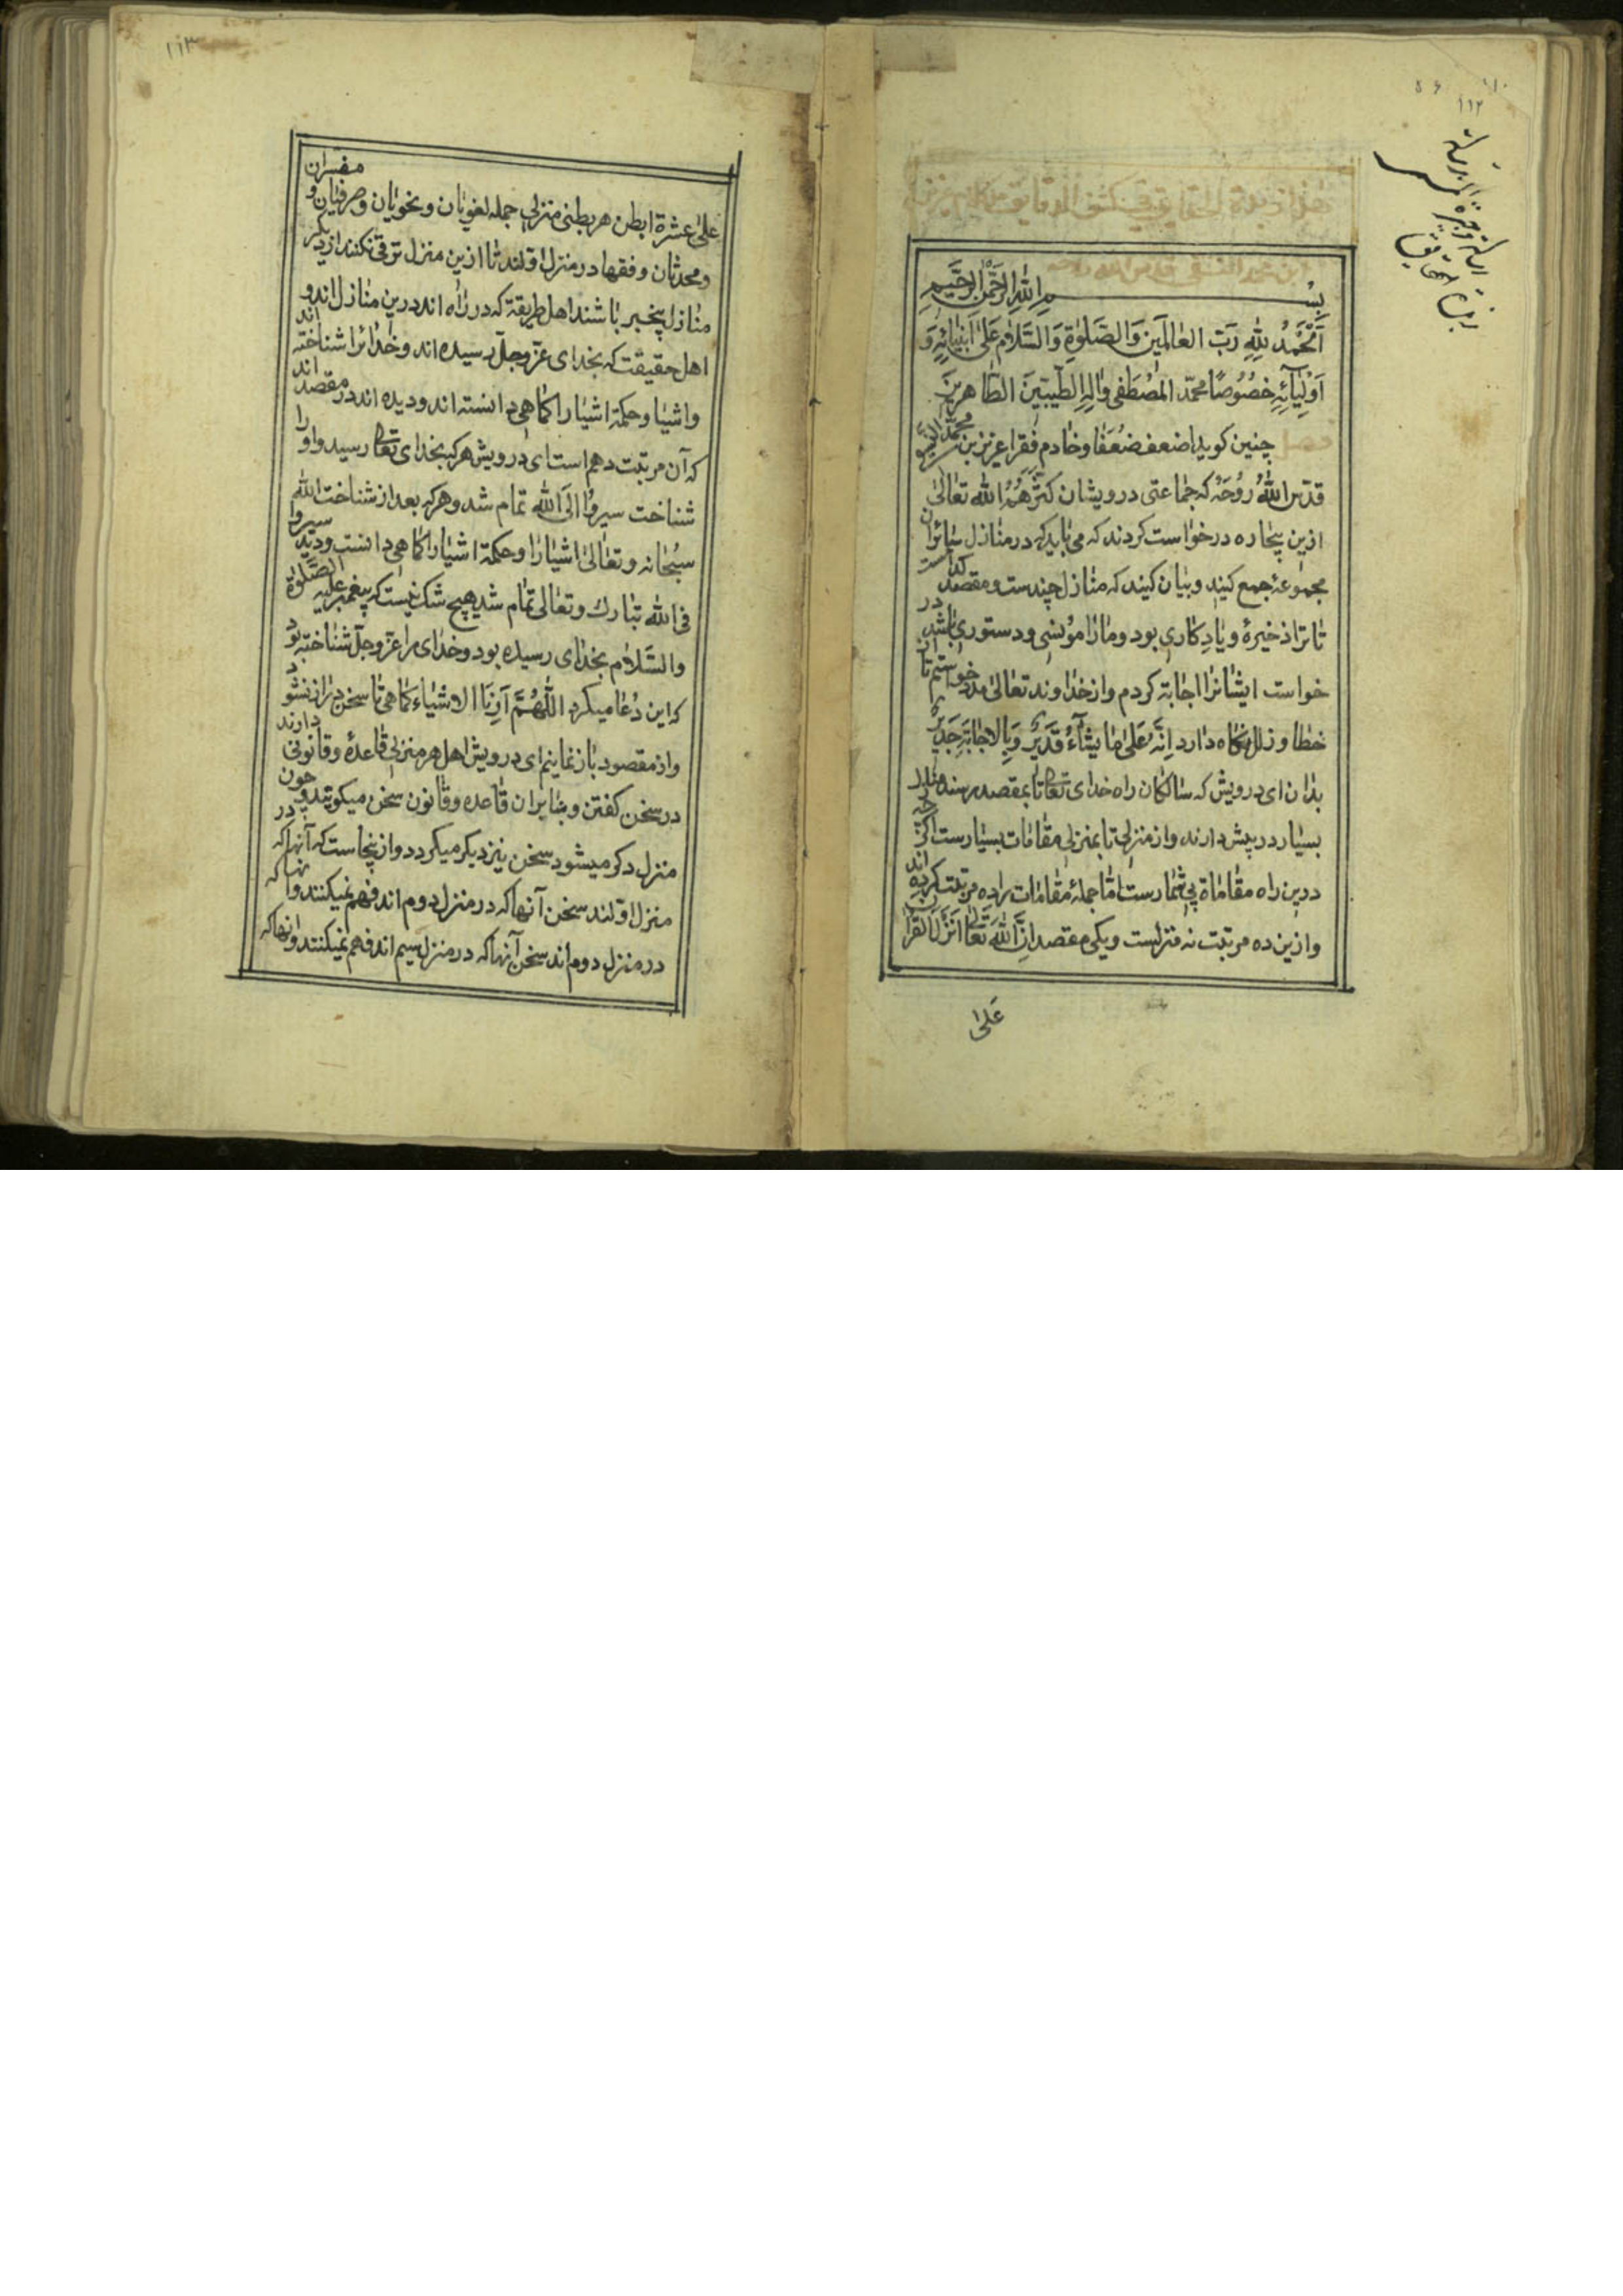 ۱۱۲
بسم الله الرحمن الرحیم
اَلْحَمْدُ لِلّهِ رَبِّ العٰالَمینَ وَالصَّلوٰةِ وَالسَّلٰام عَلیٰ اَنْبِیٰائِهِ وَ
اَوْلِیٰآئِهِ خصُوُصًا محمّد المُصْطَفى وٰالِهِ الطَّیّبینَ الطّاهرینَ
چنین کوید اضعف ضُعَفٰا و خٰادم فقرا عزیز بن محمّد النسفی
قدّس اللهُ رُوُحَهُ که جمٰاعتی درویشان کَثَّرَهُمُ الله تعٰالیٰ
ازین بیچٰاره درخوٰاست کردند که می بٰاید که در منٰازل سٰائران
مجموعهٔ جمع کنید و بیٰان کنید که منٰازل چندست و مقصد کدٰامست
تٰا ترٰا ذخیرهٔ و یٰادِکٰاری بود و مٰارٰا مؤنسی و دستوری بٰاشد در
خواست ایشٰانرٰا اجٰابة کردم و از خدٰاوند تعٰالیٰ مدد خوٰاستم تٰا از
خطٰا و زلل نکٰاه دٰارد اِنَّهُ عَلیٰ مٰا یَشٰآءُ قَدیٖرٌ وَبِالاجٰابَةِ جَدیٖرٌ
بدٰان ای درویش که سٰالکٰان رٰاه خدٰای تعالی تٰا بمقصد رسند منٰازل
بسیٰار در پیش دٰارند و از منزلی تٰا بمنزلی مقٰامٰات بسیٰارست اکرچه
درین رٰاه مقٰامٰاة بی شمٰارست امّٰا جملهٔ مقٰامٰات رٰا ده مرتبت کرده اند
و ازین ده مرتبت نه منزلست و یکی مقصد اِنَّ اللهَ تَعٰالیٰ اَنْزَلَ القرآن
عَلیٰ
۱۱۳
علیٰ عشرة ابطن هر بطنی منزلی جمله لغویٰان و نحویٰان و صرفیٰان و مفسّران
و محدثٰان و فقهٰا در منزل اوّلند تٰا ازین منزل ترقی نکنند از دیکر
منٰازل بیخبر بٰاشند اهل طریقة که در رٰاه اند درین منٰازل اند و
اهل حقیقت که بخدای عزّ و جلّ رسیده اند و خدٰایرٰا شناخته اند
و اشیٰا و حکمة اشیٰا رٰا کمٰاهی دٰانسته اند و دیده اند در مقصد اند
که آن مرتبت دهم است ای درویش هر که بخدٰای تعالی رسید و او رٰا
شنٰاخت سیر وٰا الَی الله تمٰام شد و هر که بعد از شنٰاخت الله
سبُحٰانه و تعٰالیٰ اشیٰا رٰا و حکمة اشیٰا رٰا کمٰاهی دٰانست و دید سیر وٰا
فی الله تبٰارك و تعٰالی تمٰام شد هیچ شك نیست که پیغمبر علیه الصَّلوٰة
والسَّلٰام بخدٰای رسیده بود و خدٰای را عزّ و جلّ شنٰاخته بود
که این دُعٰا میکرد اللّٰهُمَّ اَرِنَا الاشیٰاء کمٰاهی تٰا سخن درٰاز نشود
و از مقصود بٰاز نمٰاینم ای درویش اهل هر منزلی قٰاعدهٔ و قٰانونی دٰارند
در سخن کفتن و بنٰا بر ان قٰاعده و قٰانون سخن میکویند و چون
منزل دکر میشود سخن نیز دیکر میکردد و ازینجٰاست که آنهٰا که در
منزل اوّلند سخن آنهٰا که در منزل دوم اند فهم نمیکنند و آنهٰا که
در منزل دوم اند سخن آنهٰا که در منزل سیم اند فهم نمیکنند و آنهٰا که